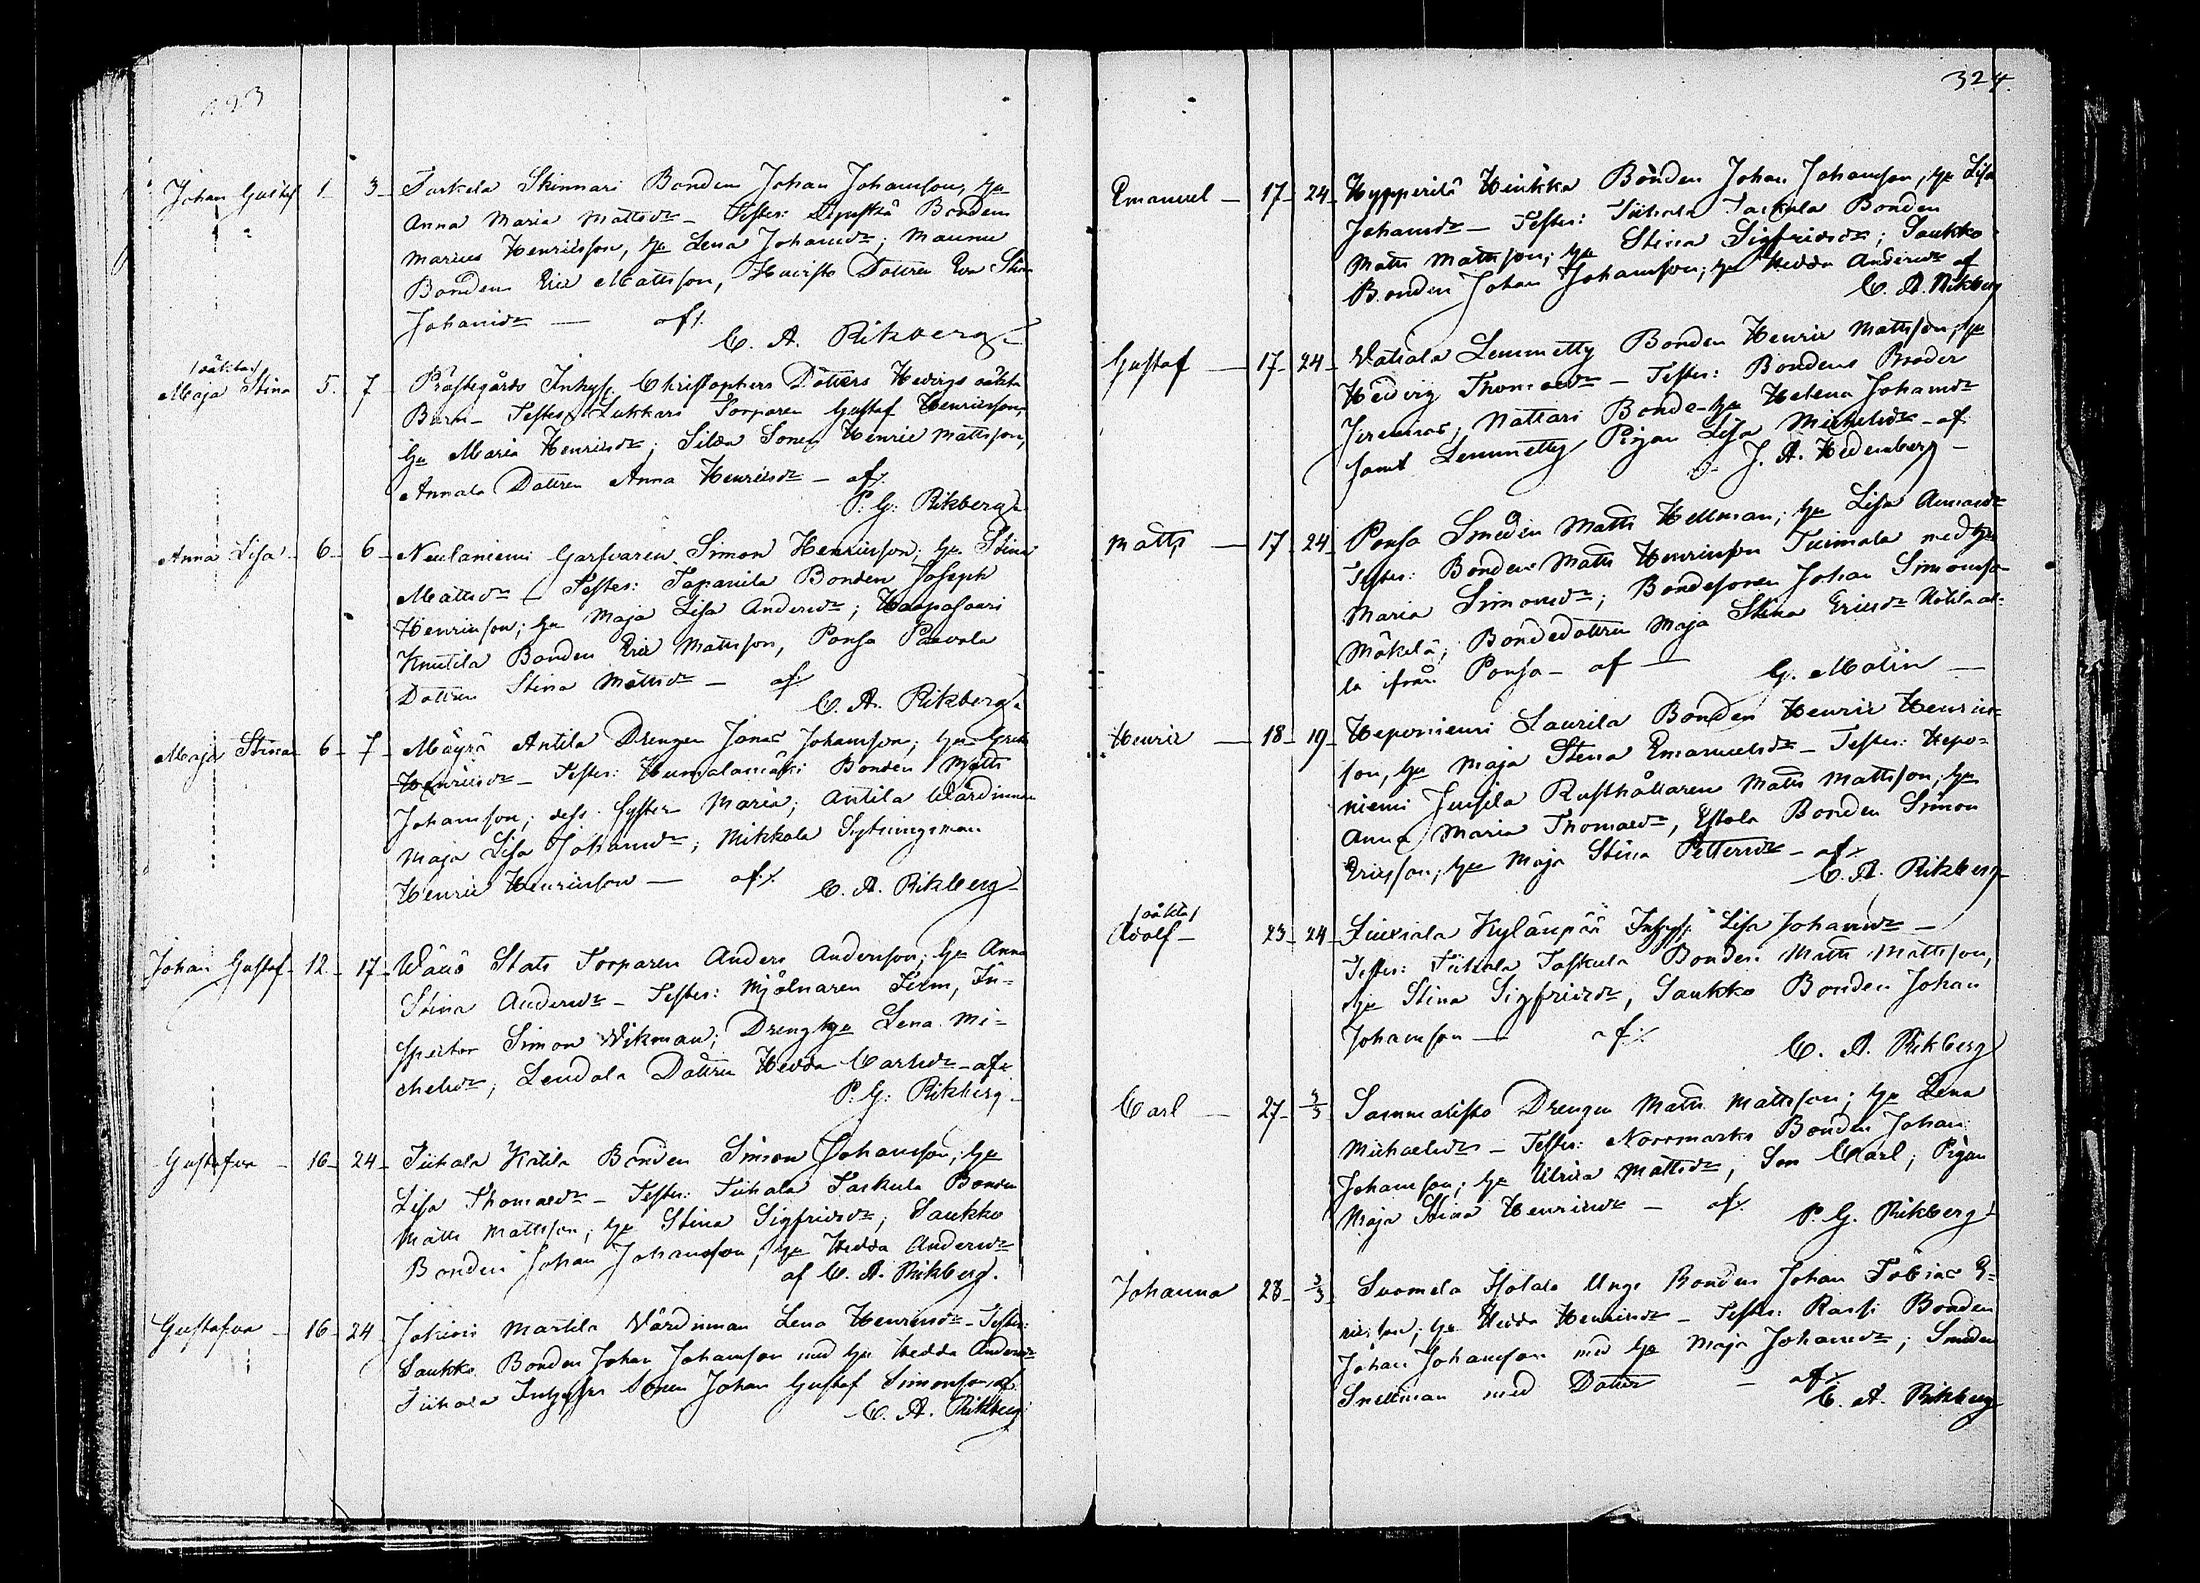 323
Johan Gustaf 1 - 3 - Taskila Skinnari Bonden Johan Johansson, hu
Anna Maria Mattsdr - Testes: Bonden
Marius Henriksson, hu Lena Johansdr; Maunu
Bonden Eric Mattsson, Dottren Eva Stina
Johansdr — af
C. A. Rikberg
/oäkta/
Maja Stina 5. 7 - Prästegårds Inhys: Christophers Dotters Hedvigs oäkta
Barn - Testes: Lukkari Torparen Gustaf Henricsson,
hu Maria Henricsdr; Sonen Henric Mattsson,
Annala Dottren Anna Henricsdr - af
P. G. Rikberg
Anna Lisa - 6 - 6 - Neulaniemi Garfvaren Simon Henricsson; hu Stina
Mattsdr - Testes: Tapanila Bonden Joseph
Henricsson; hu Maja Lisa Andersdr; Haapasaari
Knutila Bonden Eric Mattsson, Ponsa Paavola
Dottren Stina Mattsdr - af
C. A. Rikberg
Maja Stina 6 - 7 - Mäyrä Antila Drengen Jonas Johansson; hu Greta
Henricsdr - Testes: Humalamäki Bonden Matts
Johansson; dess Syster Maria; Antila Värdinnan
Maja Lisa Johansdr; Mikkola Sytningsman
Henric Henricsson — af
C. A. Rikberg
Johan Gustaf - 12 - 17 - Stats Torparen Anders Andersson; hu Anna
Stina Andersdr - Testes: Mjölnaren Term, In-
spector Simon Wikman; Dreng hu Lena Mi-
chelsdr; Lendala Dottren Hedda Carlsdr - af
P. G. Rikberg
Gustafva - 16 - 24 - Tiihala Kötilä Bonden Simon Johansson; hu
Lisa Thomasdr - Testes: Tiihala Taskula Bonden
Matts Mattsson; hu Stina Sigfridsdr; Saukko
Bonden Johan Johansson; hu Hedda Andersdr
af C. A. Rikberg.
Gustafva - 16 - 24 Jokiois Martila Värdinnan Lena Henricsdr - Testes:
Saukko Bonden Johan Johansson med hu Hedda Andersdr
Tiihala Inhyses Sonen Johan Gustaf Simonsson, af
C. A. Rikberg
324.
Emanuel - 17 - 24 - Hypperilä Heikka Bonden Johan Johansson, hu Lisa
Johansdr - Testes: Tiihala Taskula Bonden
Matts Mattsson; hu Stina Sigfridsdr; Saukko
Bonden Johan Johansson; hu Hedda Andersdr af
C. A. Rikberg
Gustaf - 17 - 24 - Vatiala Lemmetty Bonden Henric Mattsson; hu
Hedvig Thomasdr - Testes: Bondens Broder
Jeremias; Nattari Bonde-hu Helena Johansdr
samt Lemmetty Pigan Lisa Michelsdr - af
J. A. Hedenberg -
Matts - 17 - 24 Ponsa Smeden Matts Hellman; hu Lisa
Testes: Bonden Matts Henricsson Tursola med hu
Maria Simonsdr; Bondesonen Johan Simonsson
Mäkelä; Bondedottren Maja Stina Ericsdr
la ifrån Ponsa - af — G. Molin —
Henric - 18 - 19 - Heponiemi Laurila Bonden Henric Henrics-
son, hu Maja Stina Emanuelsdr - Testes: Hepo-
niemi Jussila Rusthållaren Matts Mattsson, hu
Anna Maria Thomasdr, Eskola Bonden Simon
Ericsson; hu Maja Stina Pettersdr - af
C. A. Rikberg
/oäkta/
Adolf - 23 - 24 - Liuksiala Kylänpää Inhys: Lisa Johansdr -
Testes: Tiihala Taskula Bonden Matts Mattsson,
hu Stina Sigfridsdr, Saukko Bonden Johan
Johansson — af
C. A. Rikberg
Carl - 27 - 3/3 Sammalisto Drengen Matts Mattsson; hu Lena
Michaelsdr - Testes: Norrmarks Bonden Johan
Johansson; hu Ulrica Mattsdr, Son Carl; Pigan
Maja Stina Henricsdr - af P. G. Rikberg
Johanna 28 - 3/3 Suomela Isotalo Unge Bonden Johan Tobias E-
ricsson; hu Hedda Henricsdr - Testes: Rassi Bonden
Johan Johansson med hu Maja Johansdr; Smeden
Snellman med Dotter - af
C. A. Rikberg